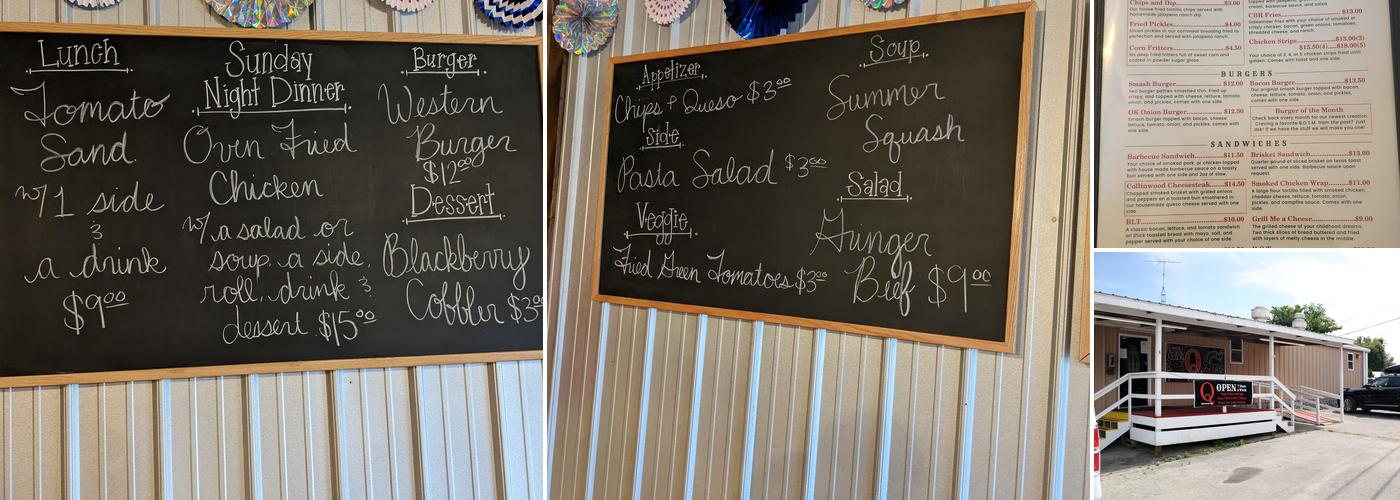 Lunch
Tomato
Sand.
w/1 side
&
a drink
$9.00
Sunday
Night Dinner
Oven Fried
Chicken
w/ a salad or
soup, a side,
roll, drink &
dessert $15.00
Burger
Western
Burger
$12.00
Dessert
Blackberry
Cobbler $3.00
Appetizer
Chips & Queso $3.00
Side
Pasta Salad $3.00
Veggie
Fried Green Tomatoes $3.00
Soup
Summer
Squash
Salad
Ginger
Beef $9.00
Chips and Dip $3.00
Our house fried tortilla chips served with
homemade jalapeno ranch dip.
Fried Pickles $4.00
Sliced pickles in our cornmeal breading fried to
perfection and served with jalapeno ranch.
Corn Fritters $4.50
Six deep fried fritters full of sweet corn and
coated in powder sugar glaze.
cream, barbecue sauce, and salsa.
CBR Fries $13.00
Sidewinder fries with your choice of smoked or
crispy chicken, bacon, green onions, tomatoes,
shredded cheese, and ranch.
Chicken Strips $13.00(3)
$15.50(4) $18.00(5)
Your choice of 3, 4, or 5 chicken strips fried until
golden. Comes with toast and one side.
BURGERS
Smash Burger $12.00
Two Burger patties smashed thin, fried up
crispy, and topped with cheese, lettuce, tomato,
onion, and pickles, comes with one side.
OK Onion Burger $12.50
Smash burger topped with bacon, cheese,
lettuce, tomato, onion, and pickles, comes with
one side.
Bacon Burger $13.50
Our original smash burger topped with bacon,
cheese, lettuce, tomato, onion, and pickles,
comes with one side.
Burger of the Month
Check back every month for our newest creation.
Craving a favorite B.O.T.M. from the past? Just
ask! If we have the stuff we will make you one!
SANDWICHES
Barbecue Sandwich $11.50
Your choice of smoked pork, or chicken topped
with house made barbecue sauce on a toasty
bun served with one side and 2oz of slaw.
Collinwood Cheesesteak $14.50
Chopped smoked brisket with grilled onions
and peppers on a toasted bun smothered in
our housemade queso cheese served with one
side.
BLT $10.00
A classic bacon, lettuce, and tomato sandwich
on thick toasted bread with mayo, salt, and
pepper served with your choice of one side.
Brisket Sandwich $13.00
Quarter pound of sliced brisket on texas toast
served with one side. Barbecue sauce upon
request.
Smoked Chicken Wrap $11.00
A large flour tortilla filled with smoked chicken,
cheddar cheese, lettuce, tomato, onion,
pickles, and campfire sauce. Comes with one
side.
Grill Me a Cheese $9.00
The grilled cheese of your childhood dreams.
Two thick slices of bread buttered and fried
with layers of melty cheese in the middle.
Q
Q OPEN